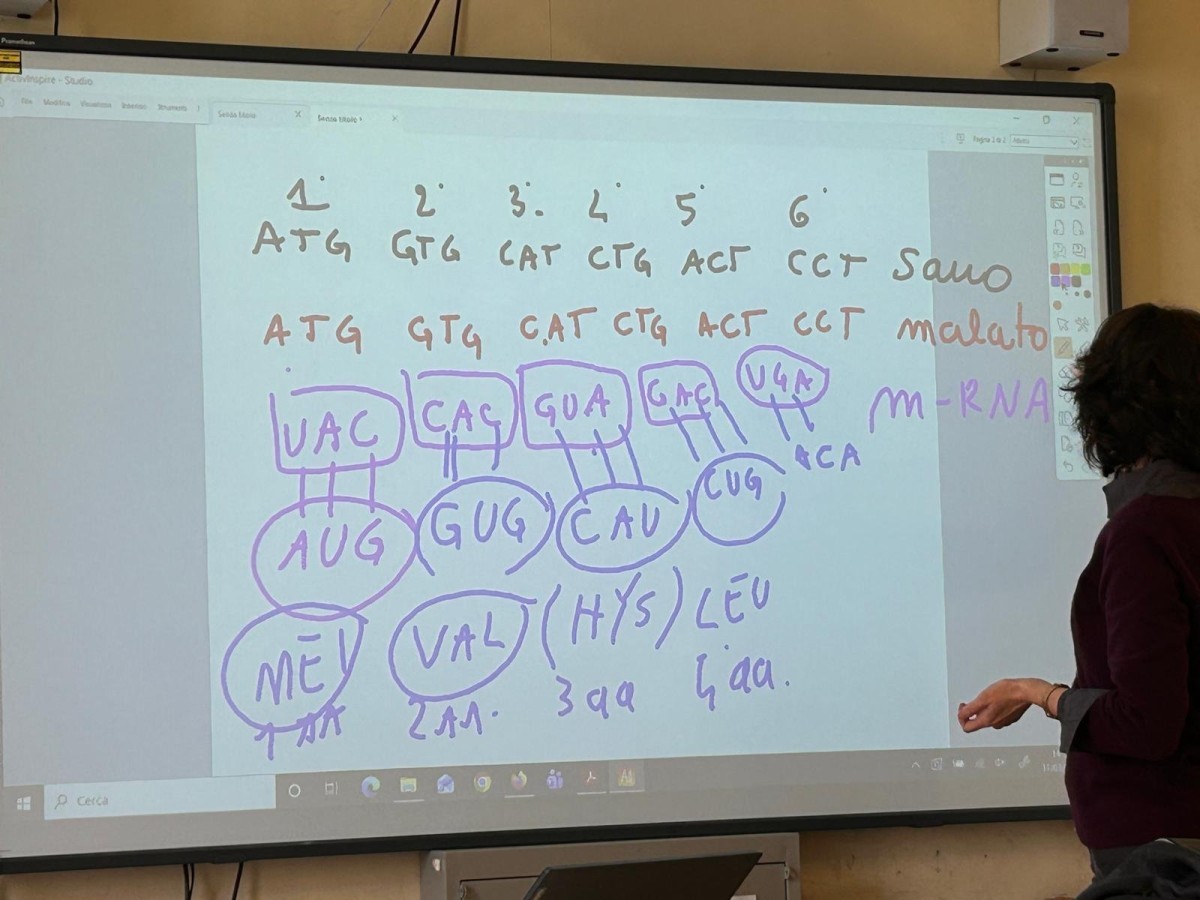 ActivInspire - Studio
File Modifica Visualizza Inserisci Strumenti
Senza titolo Senza titolo *
1° 2° 3. 4° 5° 6°
ATG GTG CAT CTG ACT CCT Sano
ATG GTG CAT CTG ACT CCT malato
UAC CAC GUA GAC UGA m-RNA
AUG GUG CAU CUG ACA
MET VAL (HYS) LEU
1 AA 2 AA. 3 aa 4° aa.
Cerca